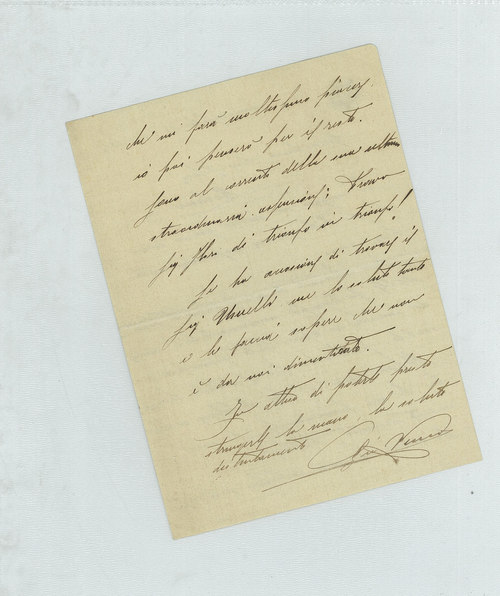 che mi farà moltissimo piacere
io poi penserò per il resto.
Sono al corrente delle sue ultime
straordinarie; Bravo
Sig di trionfo in trionfo!
Se ha occasione di trovare il
Sig me lo saluti tanto
e le faccia sapere che non
è da noi dimenticato.
In attesa di poterle presto
stringerle la mano la saluto
distintamente